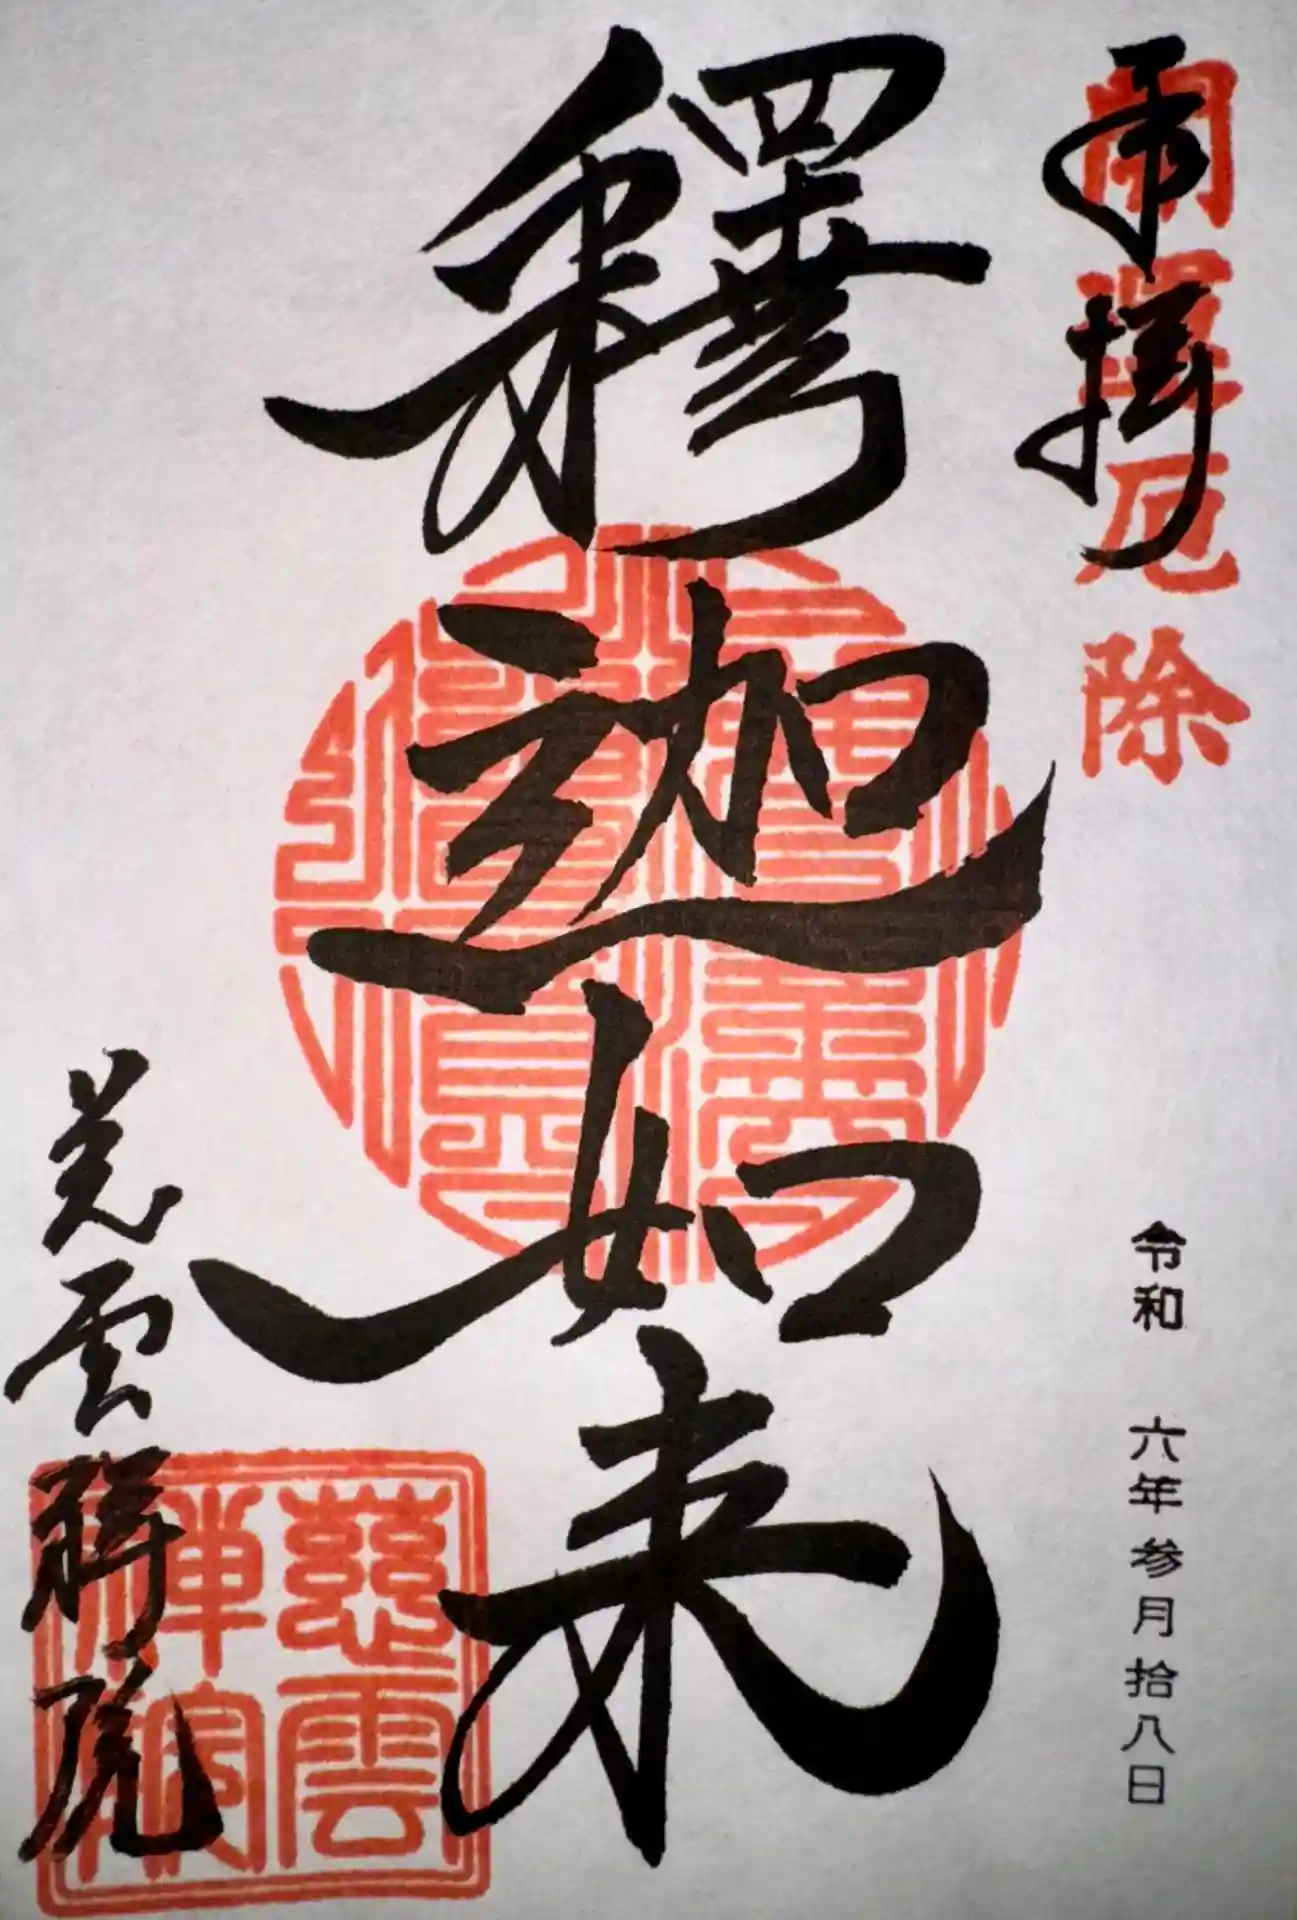 開運厄除
奉拝
令和 六年参月拾八日
釋迦如来
慈雲禅院
慈雲
禅院